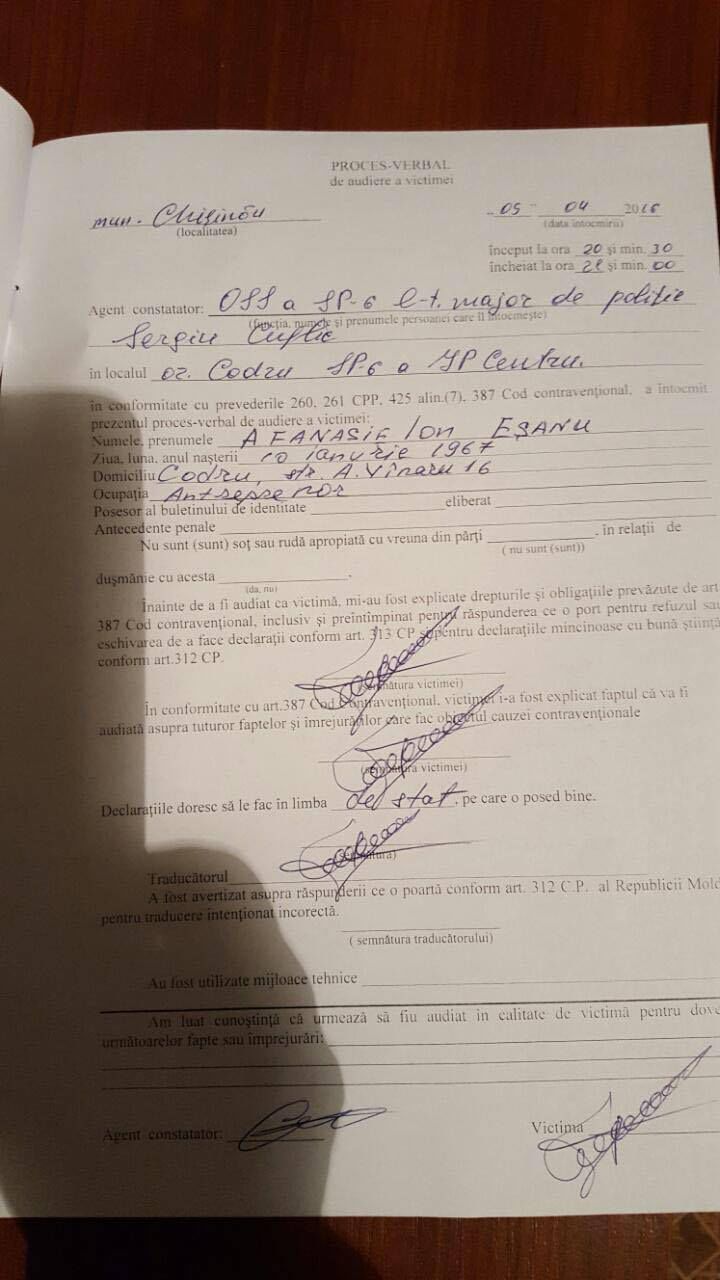 PROCES-VERBAL
de audiere a victimei
mun. Chișinău
(localitatea)
„ 05 ” 04 2016
(data întocmirii)
început la ora 20 și min. 30
încheiat la ora 21 și min. 00
Agent constatator: OSS a SP-6 l-t. major de poliție
(funcția, numele și prenumele persoanei care îl întocmește)
Sergiu
în localul or. Codru SP-6 a IP Centru.
în conformitate cu prevederile 260, 261 CPP, 425 alin.(7), 387 Cod contravențional, a întocmit
prezentul proces-verbal de audiere a victimei:
Numele, prenumele AFANASIE Ion EȘANU
Ziua, luna, anul nașterii 10 ianurie 1967
Domiciliu Codru, str. A. Vinaru 16
Ocupația
Posesor al buletinului de identitate eliberat
Antecedente penale
Nu sunt (sunt) soț sau rudă apropiată cu vreuna din părți . în relații de
( nu sunt (sunt))
dușmănie cu acesta .
(da, nu)
Înainte de a fi audiat ca victimă, mi-au fost explicate drepturile și obligațiile prevăzute de art.
387 Cod contravențional, inclusiv și preîntîmpinat pentru răspunderea ce o port pentru refuzul sau
eschivarea de a face declarații conform art. 313 CP și pentru declarațiile mincinoase cu bună știință
conform art.312 CP.
(semnătura victimei)
În conformitate cu art.387 Cod Contravențional, victimei i-a fost explicat faptul că va fi
audiată asupra tuturor faptelor și îmrejurărilor care fac obiectul cauzei contravenționale
(semnătura victimei)
Declarațiile doresc să le fac în limba de stat, pe care o posed bine.
(semnătura)
Traducătorul
A fost avertizat asupra răspunderii ce o poartă conform art. 312 C.P. al Republicii Mold
pentru traducere intenționat incorectă.
( semnătura traducătorului)
Au fost utilizate mijloace tehnice
Am luat cunoștință că urmează să fiu audiat in calitate de victimă pentru dove
următoarelor fapte sau împrejurări:
Agent constatator:
Victima